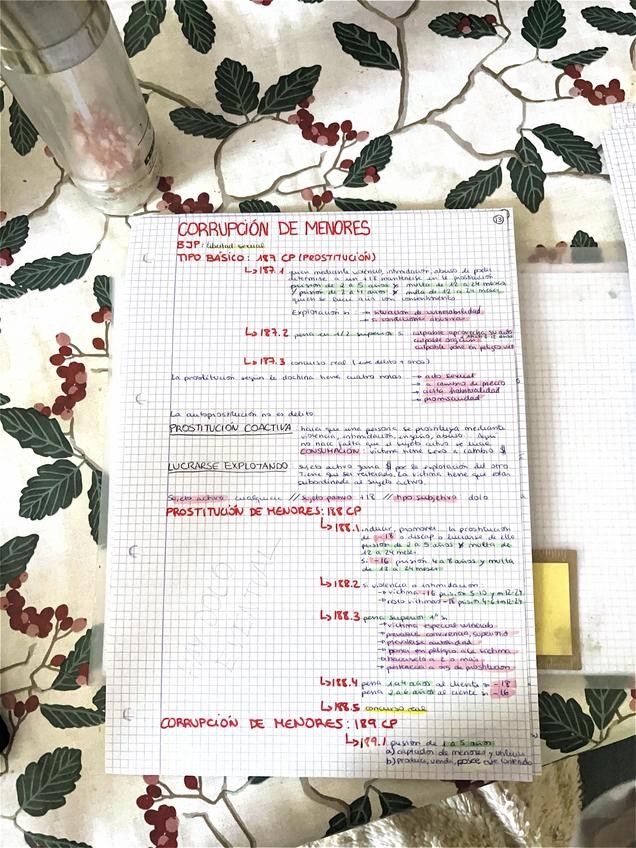 13
CORRUPCIÓN DE MENORES
BJP: libertad sexual
TIPO BÁSICO: 187 CP (PROSTITUCIÓN)
↳187.1 quien mediante violencia, intimidación, abuso de poder
determine a un +18 mantenerse en la prostitución
prisión de 2 a 5 años y multa de 12 a 24 meses
y prisión de 2 a 4 años y multa de 12 a 24 meses
quien se lucre aún con consentimiento
Explotación si → situación de vulnerabilidad
→ condiciones abusivas
↳187.2 pena en 1/2 superior si culpable aprovecha su auto
culpable
culpable pone en peligro vida
↳187.3 concurso real (este delito + otros)
La prostitución según la doctrina tiene cuatro notas → acto sexual
→ a cambio de precio
→ cierta habitualidad
→ promiscuidad
La autoprostitución no es delito.
PROSTITUCIÓN COACTIVA: hacia que una persona se prostituya mediante
violencia, intimidación, engaño, abuso. Aquí
no hace falta que el sujeto activo se lucre
CONSUMACIÓN: víctima tiene sexo a cambio $
LUCRARSE EXPLOTANDO sujeto activo gana $ por la explotación del otro
Tiene que ser reiterado. La víctima tiene que estar
subordinada al sujeto activo.
Sujeto activo cualquiera // sujeto pasivo +18 // tipo subjetivo dolo
PROSTITUCIÓN DE MENORES: 188 CP
↳188.1 inducir, promover la prostitución
de -18 o discap o lucrarse de ello
prisión de 2 a 5 años y multa de
12 a 24 meses
si -16 prisión 4 a 8 años y multa
de 12 a 24 meses
↳188.2 si violencia o intimidación
→ víctima -16 prisión 5-10 y m12-24
→ resto víctimas -18 prisión 4-6 y m12-24
↳188.3 pena superior 1º si
→ víctima especial vulnerab
→ prevalece convivencia, superiorid
→ prevalerse autoridad
→ poner en peligro a la víctima
→ 2 o más
→ pertenecía a org de prostitución
↳188.4 pena 1 a 4 años al cliente si -18
pena 2 a 6 años al cliente si -16
↳188.5 concurso real
CORRUPCIÓN DE MENORES: 189 CP
↳189.1 prisión de 1 a 5 años
a) captador de menores y utilice
b) produce, vende, posee ese contenido